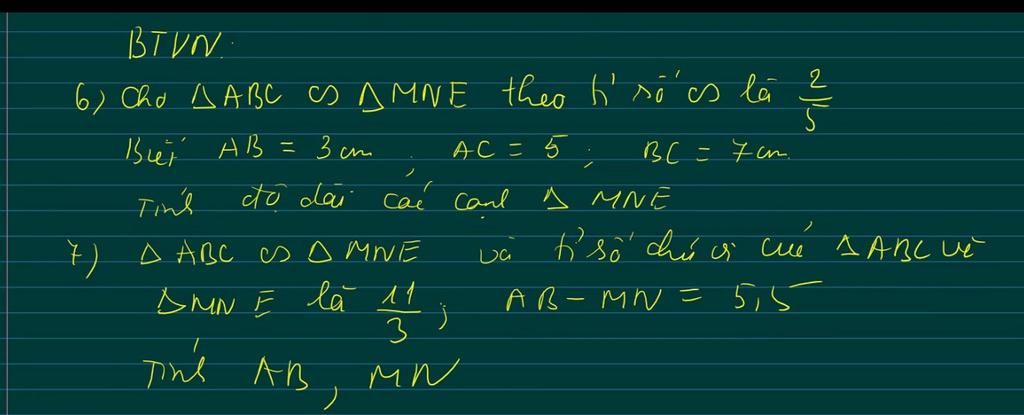 BTVN:
6) Cho ΔABC ∽ ΔMNE theo tỉ số ∽ là 2/5
Biết AB = 3 cm, AC = 5; BC = 7 cm.
Tính độ dài các cạnh Δ MNE
7) Δ ABC ∽ Δ MNE và tỉ số chu vi của ΔABC và
ΔMNE là 11/3; AB - MN = 5,5
Tính AB, MN